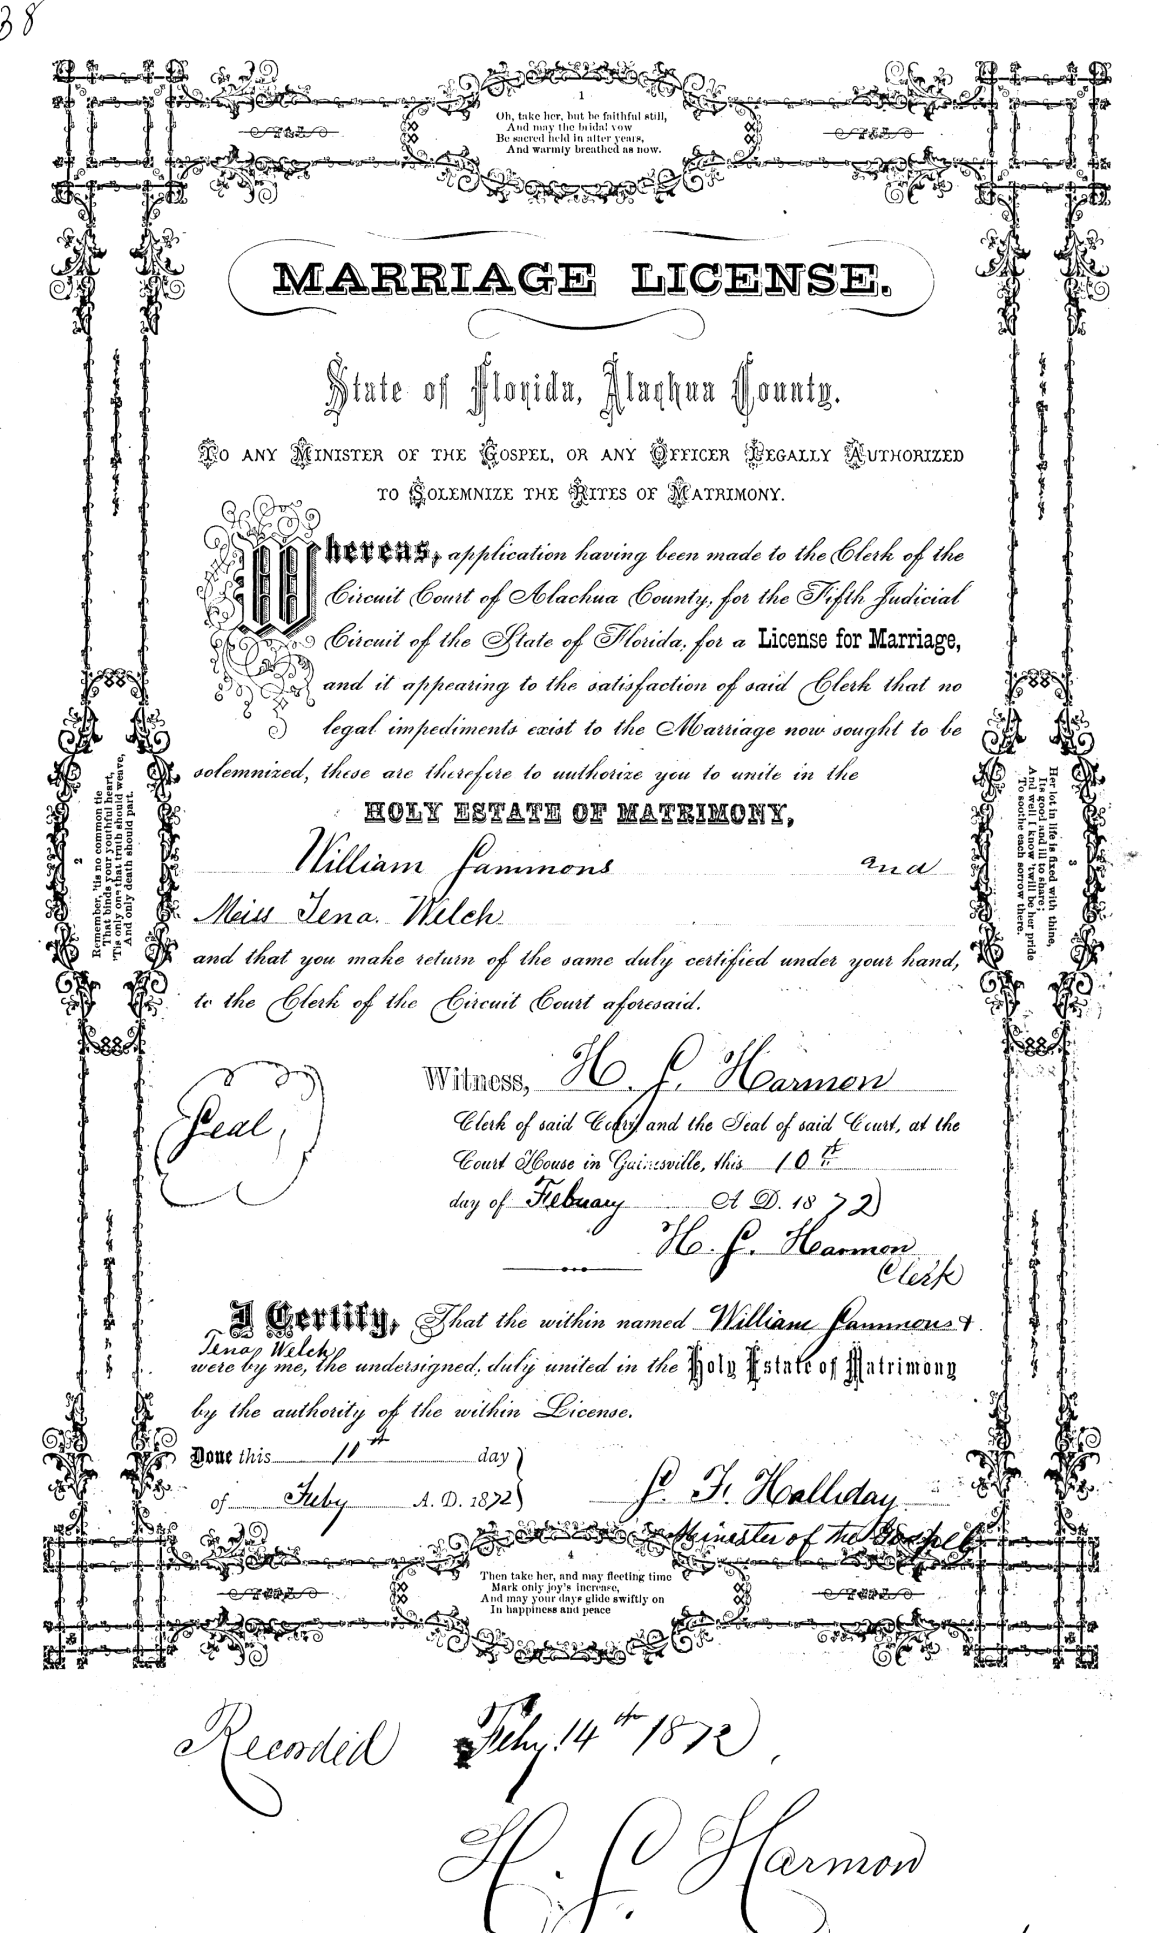 38
1
Oh, take her, but be faithful still,
And may the bridal vow
Be sacred held in after years,
And warmly breathed as now.
MARRIAGE LICENSE.
State of Florida, Alachua County.
To any Minister of the Gospel, or any Officer Legally Authorized
to Solemnize the Rites of Matrimony.
Whereas, application having been made to the Clerk of the
Circuit Court of Alachua County, for the Fifth Judicial
Circuit of the State of Florida, for a License for Marriage,
and it appearing to the satisfaction of said Clerk that no
legal impediments exist to the Marriage now sought to be
solemnized, these are therefore to authorize you to unite in the
HOLY ESTATE OF MATRIMONY,
William Sammons and
Miss Tena Welch
and that you make return of the same duly certified under your hand,
to the Clerk of the Circuit Court aforesaid.
Seal,
Witness, H. S. Harmon
Clerk of said Court, and the Seal of said Court, at the
Court House in Gainesville, this 10th
day of February A. D. 1872
H. S. Harmon
Clerk
I Certify, That the within named William Sammons &
Tena Welch
were by me, the undersigned, duly united in the Holy Estate of Matrimony
by the authority of the within License.
Done this 10th day
of Feby A. D. 1872
S. F. Halliday
Minister of the Gospel
2
Remember, 'tis no common tie
That binds your youthful heart,
'Tis only one that truth should weave,
And only death should part.
3
Her lot in life is fixed with thine,
Its good and ill to share;
And well I know 'twill be her pride
To soothe each sorrow there.
4
Then take her, and may fleeting time
Mark only joy's increase,
And may your days glide swiftly on
In happiness and peace
Recorded Feby. 14th 1872
H. S. Harmon